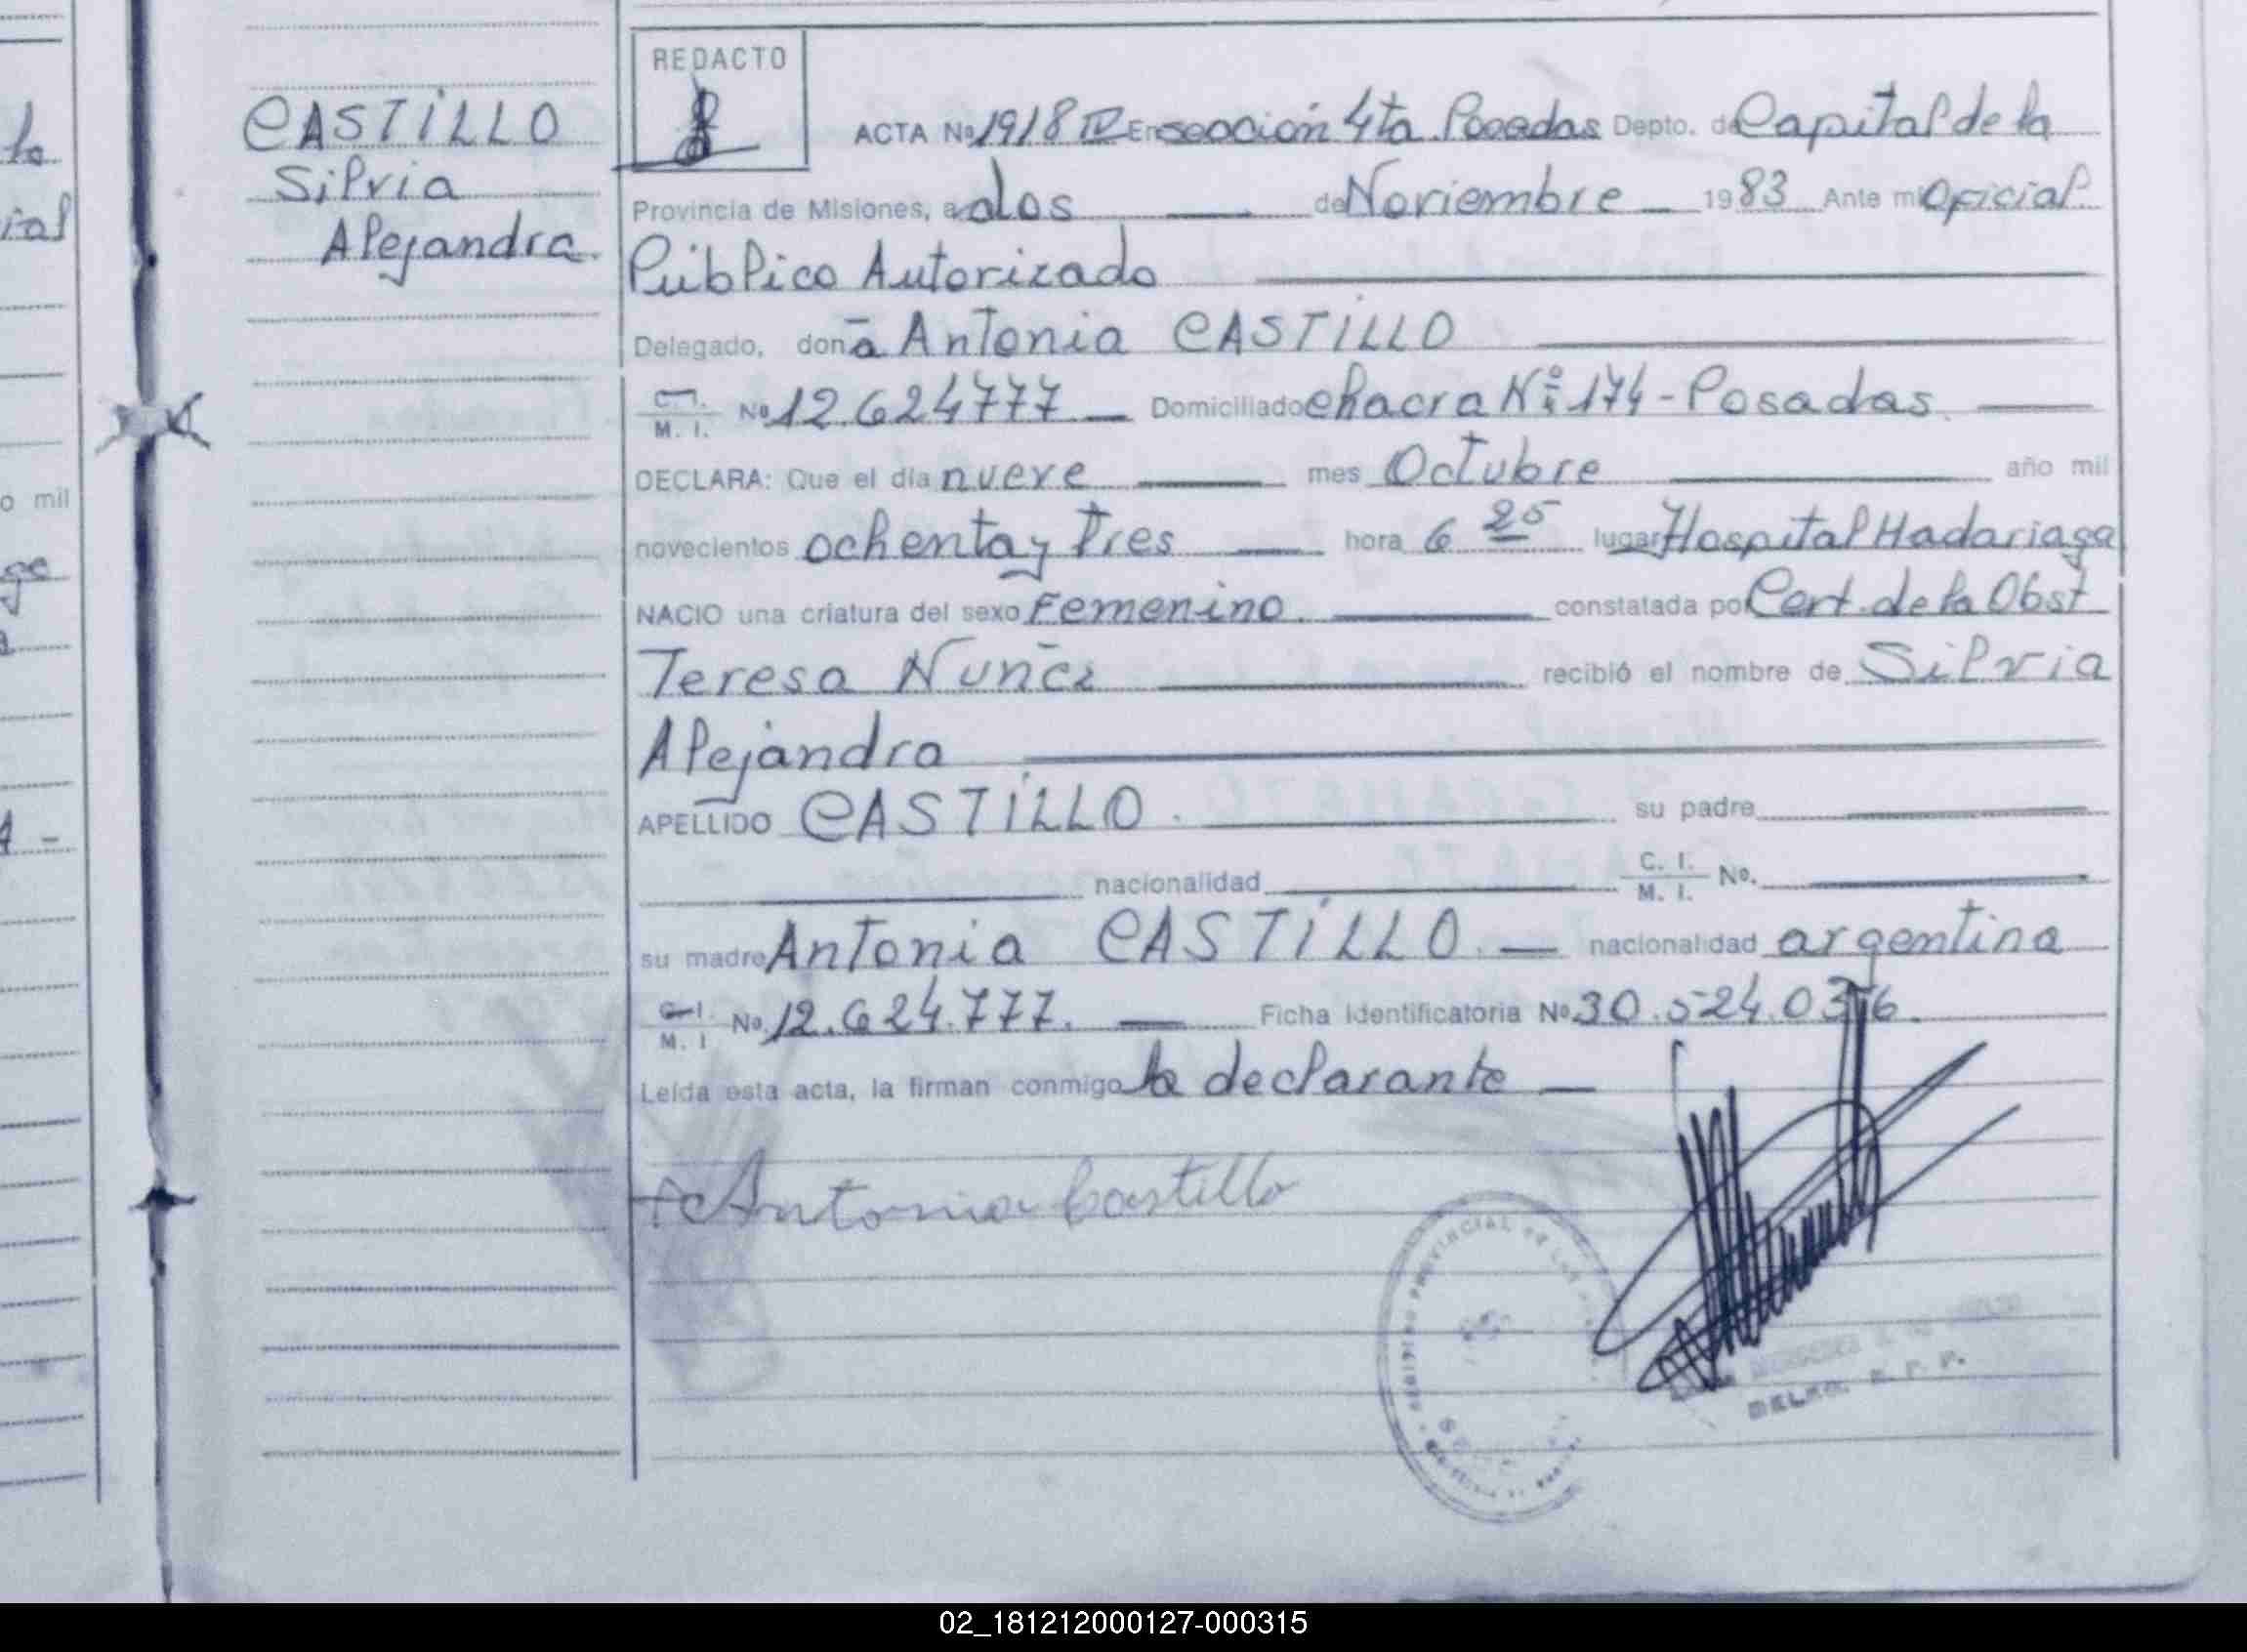 CASTILLO
Silvia
Alejandra.
REDACTO
ACTA Nº 1918 IV En sección 4ta. Posadas Depto. de Capital de la
Provincia de Misiones, a dos de Noviembre 1983 Ante mi Oficial
Público Autorizado
Delegado, doña Antonia CASTILLO
C. I. / M. I. Nº 12.624777 Domiciliado chacra Nº 174 - Posadas.
DECLARA: Que el día nueve mes Octubre año mil
novecientos ochenta y tres hora 6 25 lugar Hospital Madariaga
NACIO una criatura del sexo Femenino. constatada por Cert. de la Obst
Teresa Nuñez recibió el nombre de Silvia
Alejandra
APELLIDO CASTILLO. su padre
nacionalidad C. I. / M. I. Nº.
su madre Antonia CASTILLO. nacionalidad argentina
C. I. / M. I Nº. 12.624.777. Ficha Identificatoria Nº 30.524.036.
Leída esta acta, la firman conmigo la declarante
Antonia Castillo
PROVINCIAL DE LAS
DELEG. R. P. P.
la
ial
o mil
02_181212000127-000315